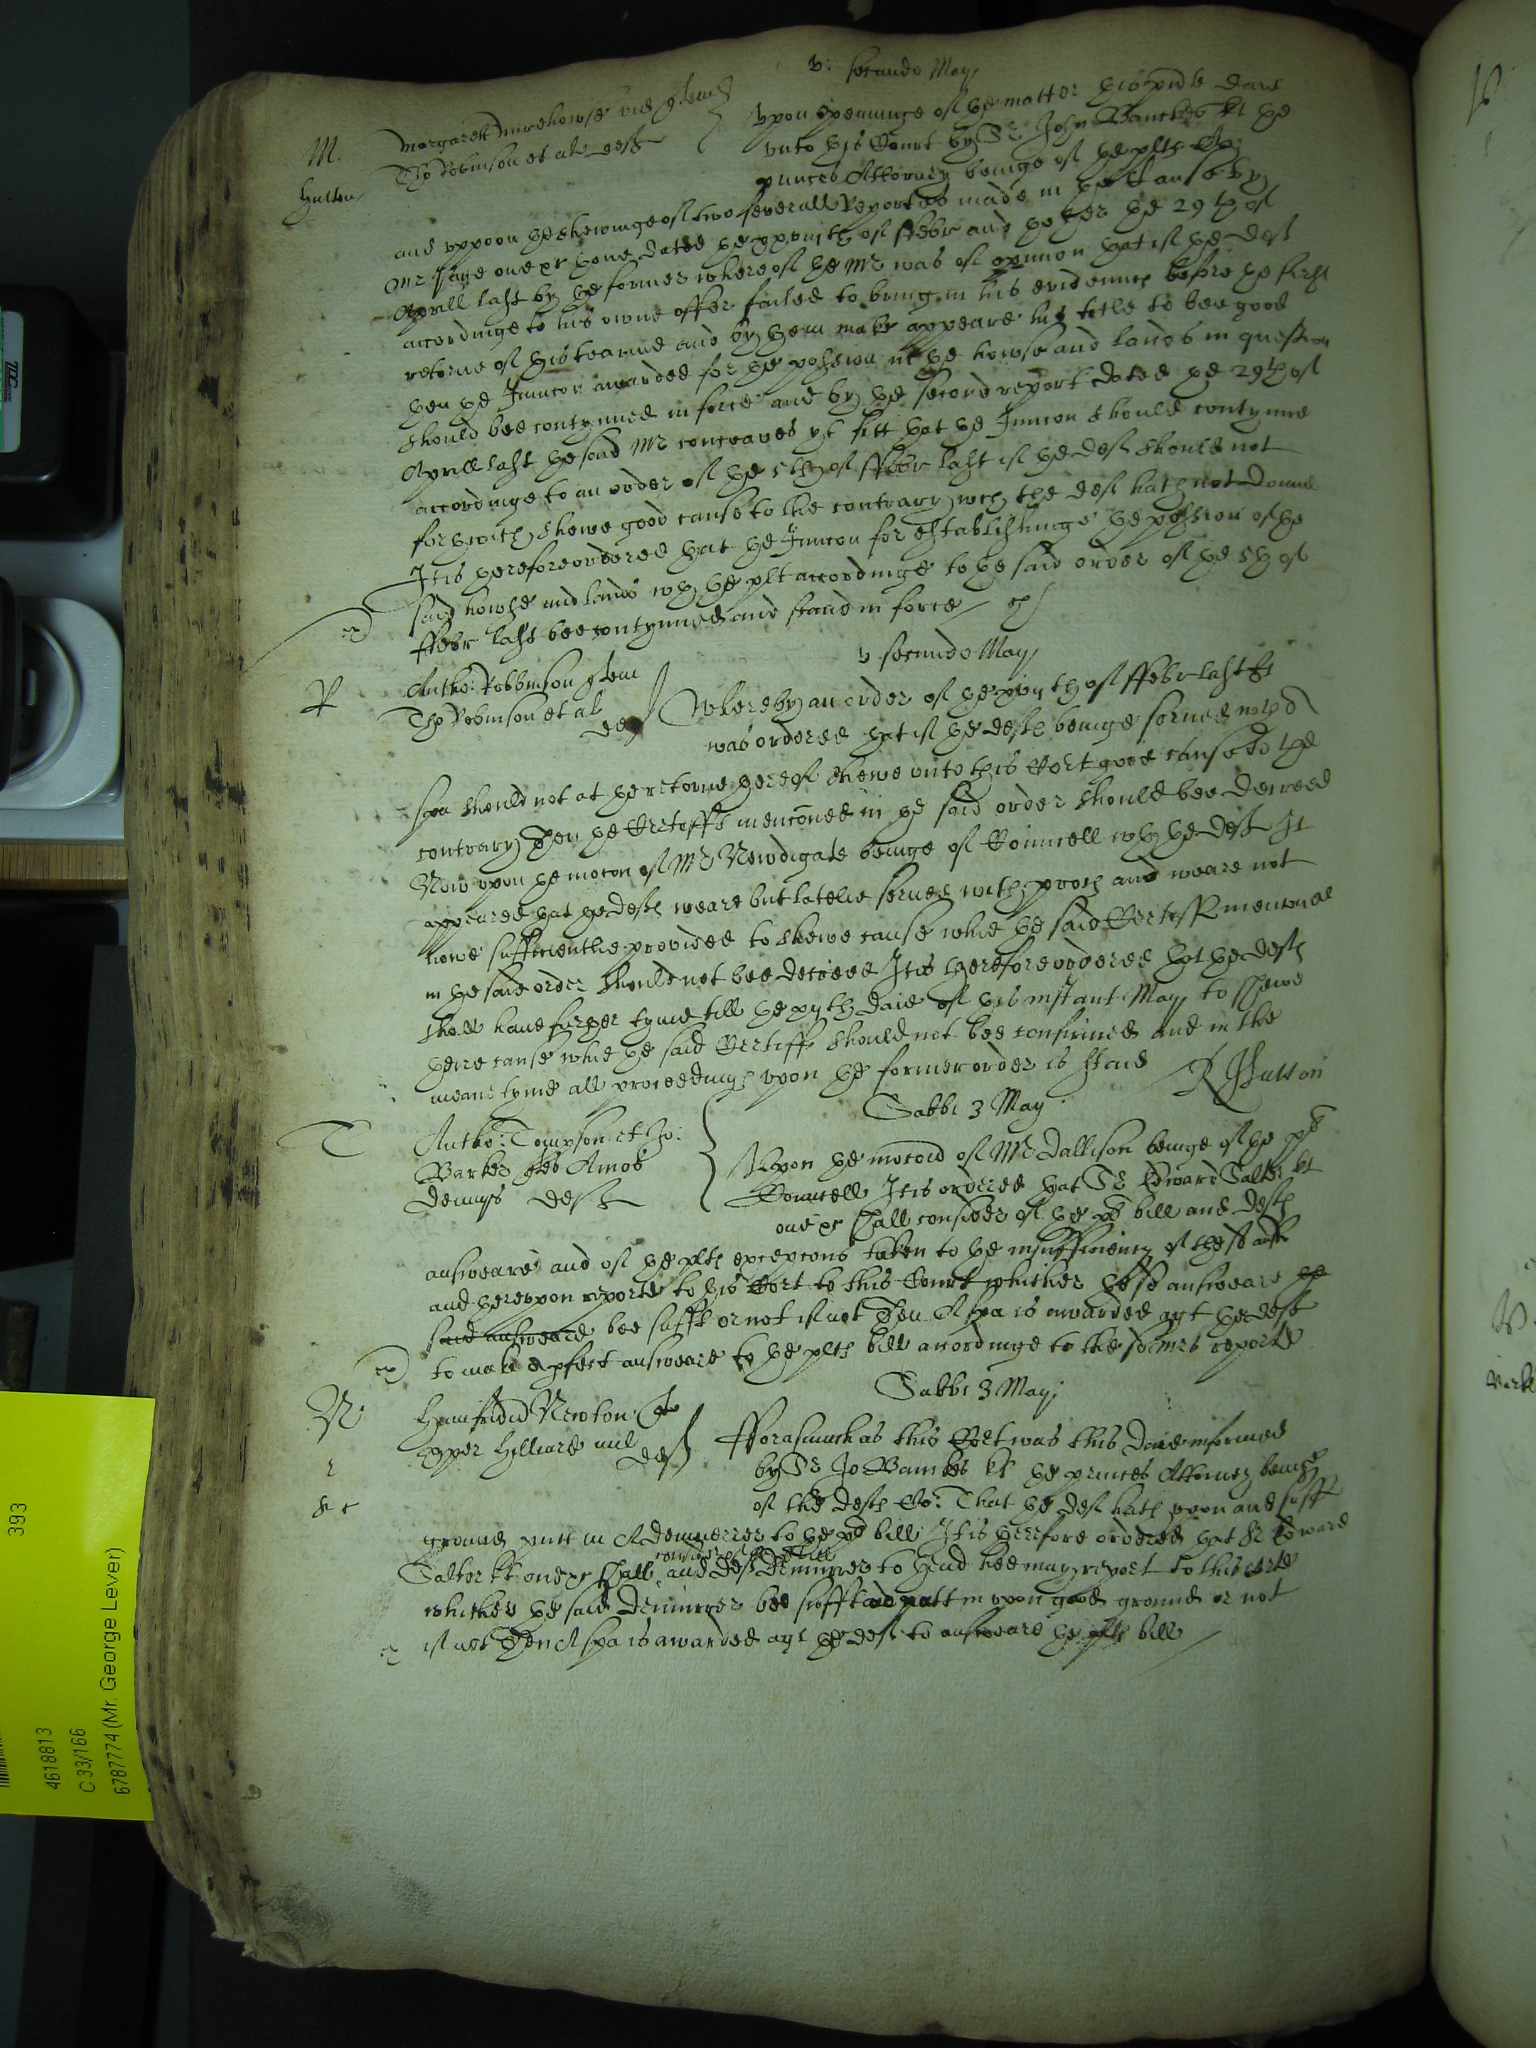 v: secundo Maij
M. Margarett Mirehowse vid quer
Tho Robinson et al defts
Hutton
Upon openinge of the matter this pnte daie
unto this Court by Sr John Banckes kt the
princes Attorney beinge of the plts Co:
and uppon the shewinge of two severall Reportes made in the Cause by
Mr Page one &c thone dated the of ffebr and thother the 29th of
Aprill last by the former whereof the Mr was of opinion that if the deft
accordinge to his owne offer failed to bring in his evidences before the first
retorne of this tearme and by them make appeare his title to bee good
then the Iniuncon awarded for the possession of the howse and lands in question
should bee contynued in force and by the second report dated the 29th of
Aprill last the said Mr conceaves yt fitt that the Iniuncon should contynue
accordinge to an order of the 5th of ffebr last if the deft should not
forthwith shewe good cause to the contrary wch the deft hath not donne
It is therefore ordered that the Iniuncon for establishinge the possession of the
said howse and lands wth the plt accordinge to the said order of the 5th of
ffebr last bee contynued and stand in force
v secundo Maij
R Antho: Robbinson quer
Tho Robinson et al
def
Whereby an order of the th of ffebr last It
was ordered that if the defts beinge served with
spa should not at the retorne thereof shewe unto this Cort good cause to the
contrary Then the Certiff mencioned in the said order should bee decreed
Now upon the mocon of Mr Newdigate beinge of Councell wth the defts It
appeared that the defts weare but latelie served with proces and weare not
nowe sufficientlie provided to shewe cause whie the said Certiff mencioned
in the said order should not bee decreed It is therefore ordered that the defts
shall have further tyme till the daie of this instant May to shewe
there cause whie the said Certiff should not bee confirmed and in the
meane tyme all proceedings upon the former order is staid R Hutton
Sabbi 3 Maij
T Antho: Tompson et Jo:
Barker Amos
Dennys defts
Upon the mocon of Mr Dallison beinge of the plts
Councell It is ordered that Sr Edward Salter kt
one &c shall consider of the pts bill and defts
answeare and of the plts excepcons taken to the insufficiency of the sd answ
and thereupon reporte to this Cort to this Court whither the sd answeare the
said answeare bee suff or not if not Then A spa is awarded agt the defts
to make a pfect answeare to the plts bill accordinge to the sd Mrs reporte
Sabbi 3 Maij
N Humfridus Newton
Hilliard mil
def
fforasmuch as this Cort was this daie informed
by Sr Jo Banckes kt the princes Attorney beinge
of the defts Co: That the deft hath upon good suff
ground putt in A demurrer to the pts bill It is therefore ordered that Sr Edward
Salter kt one &c shall consider of the bill and defts demurrer to thend hee may report to this Corte
whither the said demurrer bee suff and putt in upon good ground or not
if not Then A spa is awarded agt the deft to answeare the plts bill
393
4618813
C 33/166
6787774 (Mr. George Lever)